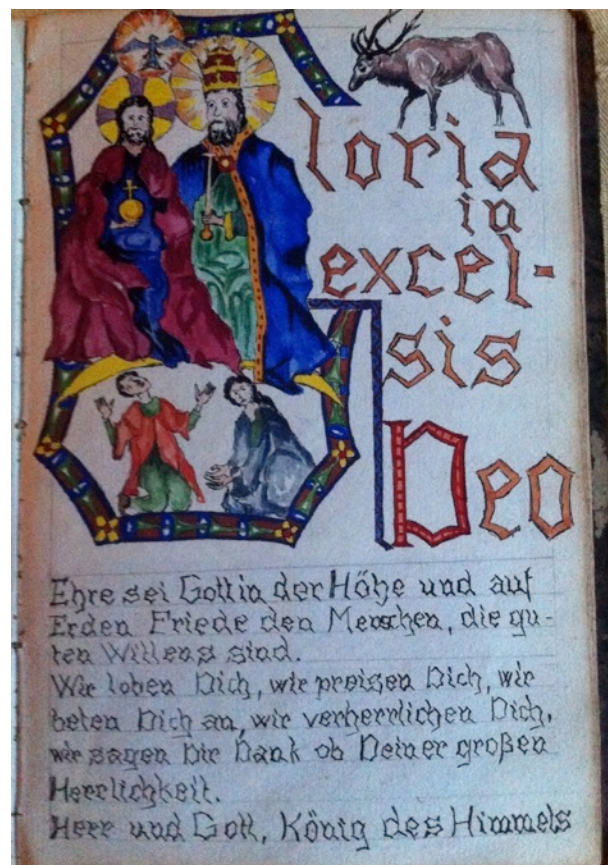 Gloria
in
excel-
sis
Deo
Ehre sei Gott in der Höhe und auf
Erden Friede den Menschen, die gu-
ten Willens sind.
Wir loben Dich, wir preisen Dich, wir
beten Dich an, wir verherrlichen Dich,
wir sagen Dir Dank ob Deiner großen
Herrlichkeit.
Herr und Gott, König des Himmels